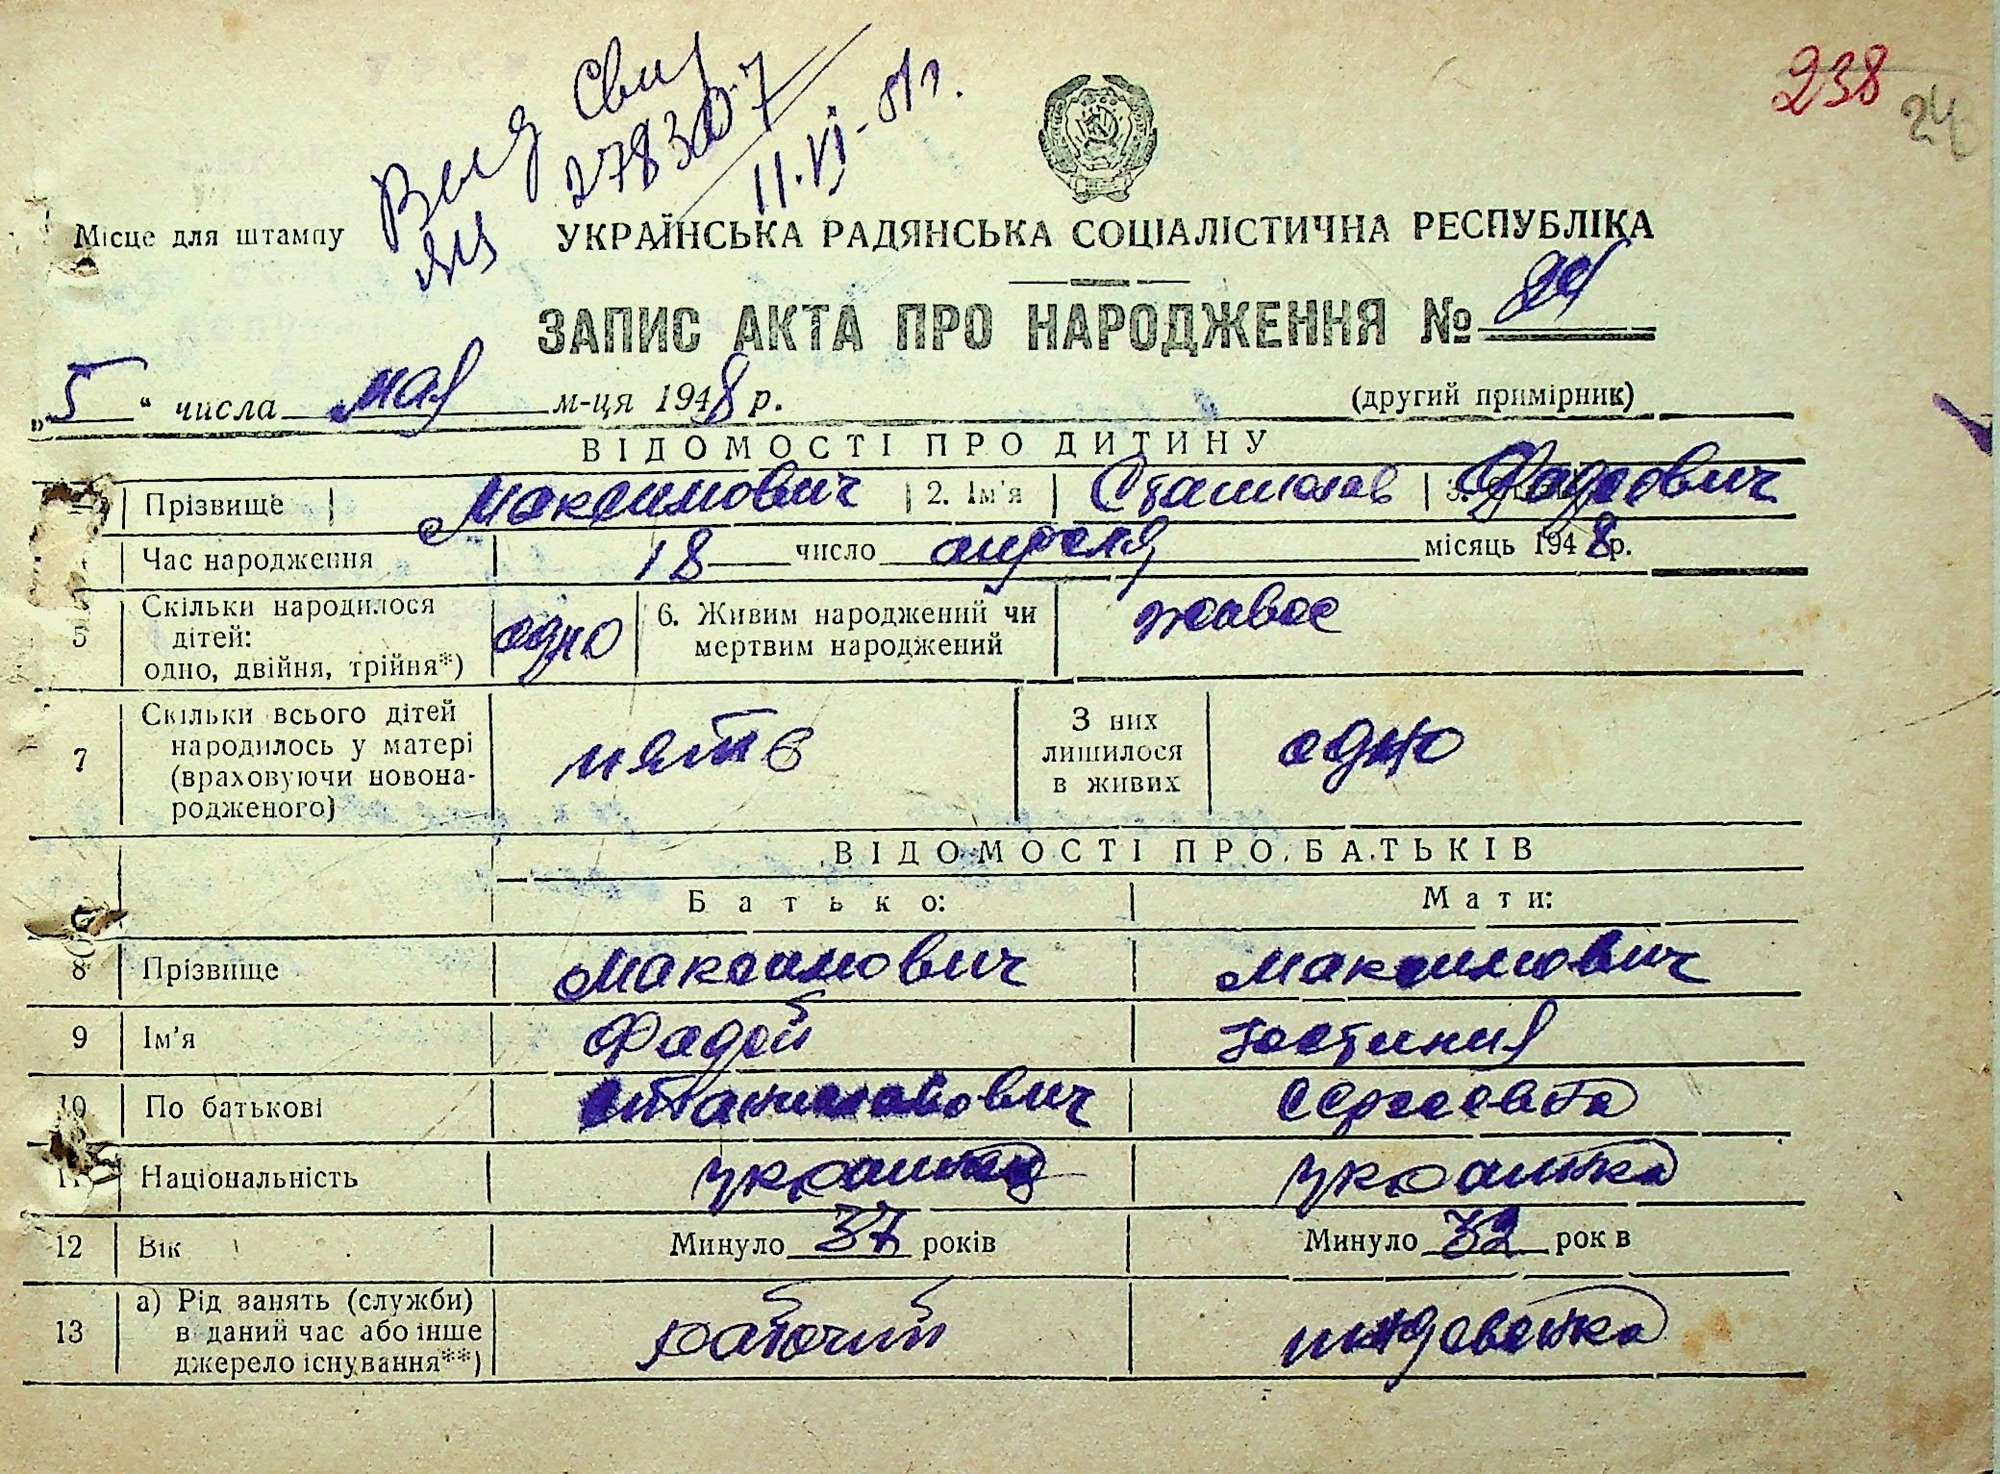 238
24
Выд Свид
ЯЦ 278307
11.VI-81г.
Місце для штампу
УКРАЇНСЬКА РАДЯНСЬКА СОЦІАЛІСТИЧНА РЕСПУБЛІКА
ЗАПИС АКТА ПРО НАРОДЖЕННЯ №
„5“ числа мая м-ця 1948 р. (другий примірник)
ВІДОМОСТІ ПРО ДИТИНУ
Прізвище Максимович 2. Ім'я Станислав 3. Фадеович
Час народження 18 число апреля місяць 1948 р.
5 Скільки народилося дітей: одно, двійня, трійня*) одно 6. Живим народжений чи мертвим народжений живое
7 Скільки всього дітей народилось у матері (враховуючи новонародженого) пять З них лишилося в живих одно
ВІДОМОСТІ ПРО БАТЬКІВ
Батько: Мати:
8 Прізвище Максимович Максимович
9 Ім'я Фадей Юстиния
10 По батькові Станиславович Сергеевна
11 Національність украинец украинка
12 Вік Минуло 37 років Минуло 32 років
13 а) Рід занять (служби) в даний час або інше джерело існування**) рабочий иждевенка